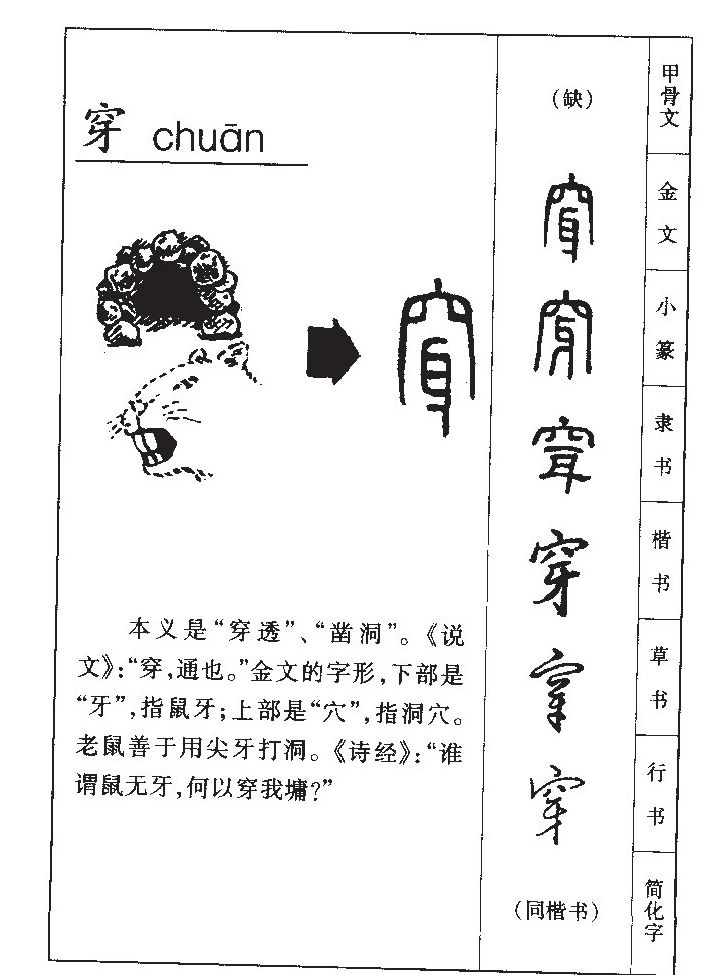 穿 chuān
本义是“穿透”、“凿洞”。《说
文》:“穿,通也。”金文的字形,下部是
“牙”,指鼠牙;上部是“穴”,指洞穴。
老鼠善于用尖牙打洞。《诗经》:“谁
谓鼠无牙,何以穿我墉?”
(缺)
穿
穿
穿
穿
穿
穿
(同楷书)
甲骨文
金文
小篆
隶书
楷书
草书
行书
简化字